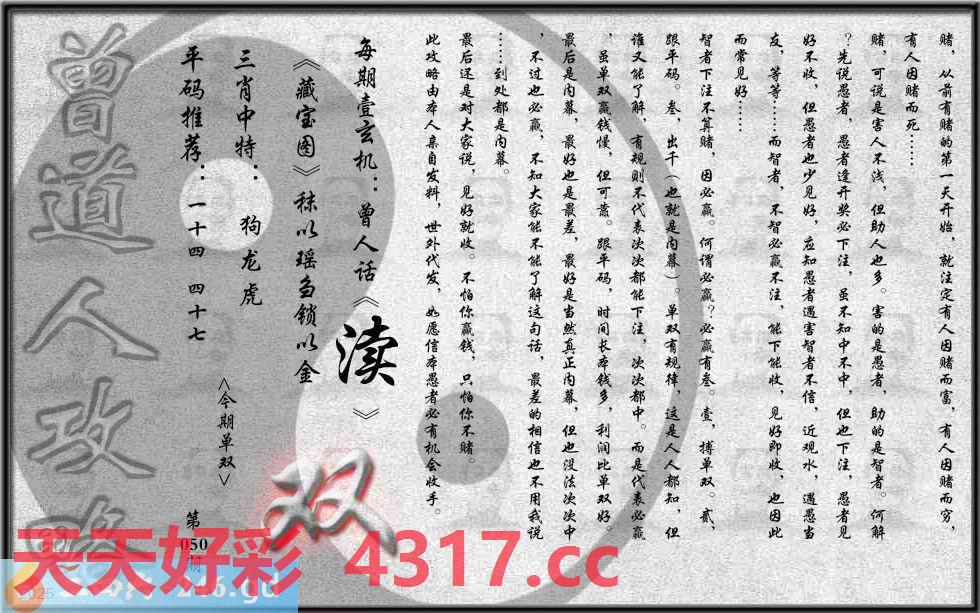 赌，从前有赌的第一天开始，就注定有人因赌而富，有人因赌而穷，
有人因赌而死……
赌，可说是害人不浅，但助人也多。害的是愚者，助的是智者。何解
？先说愚者，愚者逢开奖必下注，虽不知中不中，但也下注，愚者见
好不收，但愚者也少见好，应知愚者遇害智者不信，近观水，遇愚当
友，等等……而智者，不智必赢不注，能下能收，见好即收，也因此
而常见好……
智者下注不算赌，因必赢。何谓必赢？必赢有叁。壹，搏单双。贰，
跟平码。叁，出千（也就是内幕）。单双有规律，这是人人都知，但
谁又能了解，有规则不代表次次都能下注，次次都中。而是代表必赢
，虽单双赢钱慢，但可靠。跟平码，时间长本钱多，利润比单双好。
最后是内幕，最好也是最差，最好是当然真正内幕，但也没法次次中
，不过也必赢，不知大家能不能了解这句话，最差的相信也不用我说
……到处都是内幕。
最后还是对大家说，见好就收。不怕你赢钱，只怕你不赌。
此攻略由本人亲自发料，世外代发，如愿信本愚者必有机会收手。
每期壹玄机：曾人话《渎》
《藏宝图》秣以瑶刍锁以金
三肖中特：狗龙虎
平码推荐：一十四 四十七
<今期单双>
双
第
050
期
曾道人攻略
天天好彩 4317.cc
2025
246.gd